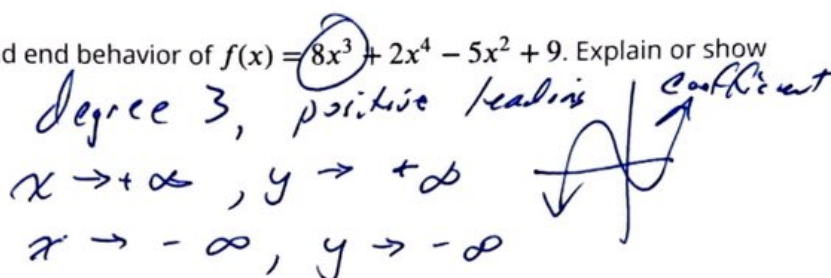 d end behavior of f(x) = 8x³ + 2x⁴ − 5x² + 9. Explain or show
degree 3, positive leading coefficient
x → + ∞ , y → + ∞
x → - ∞ , y → - ∞